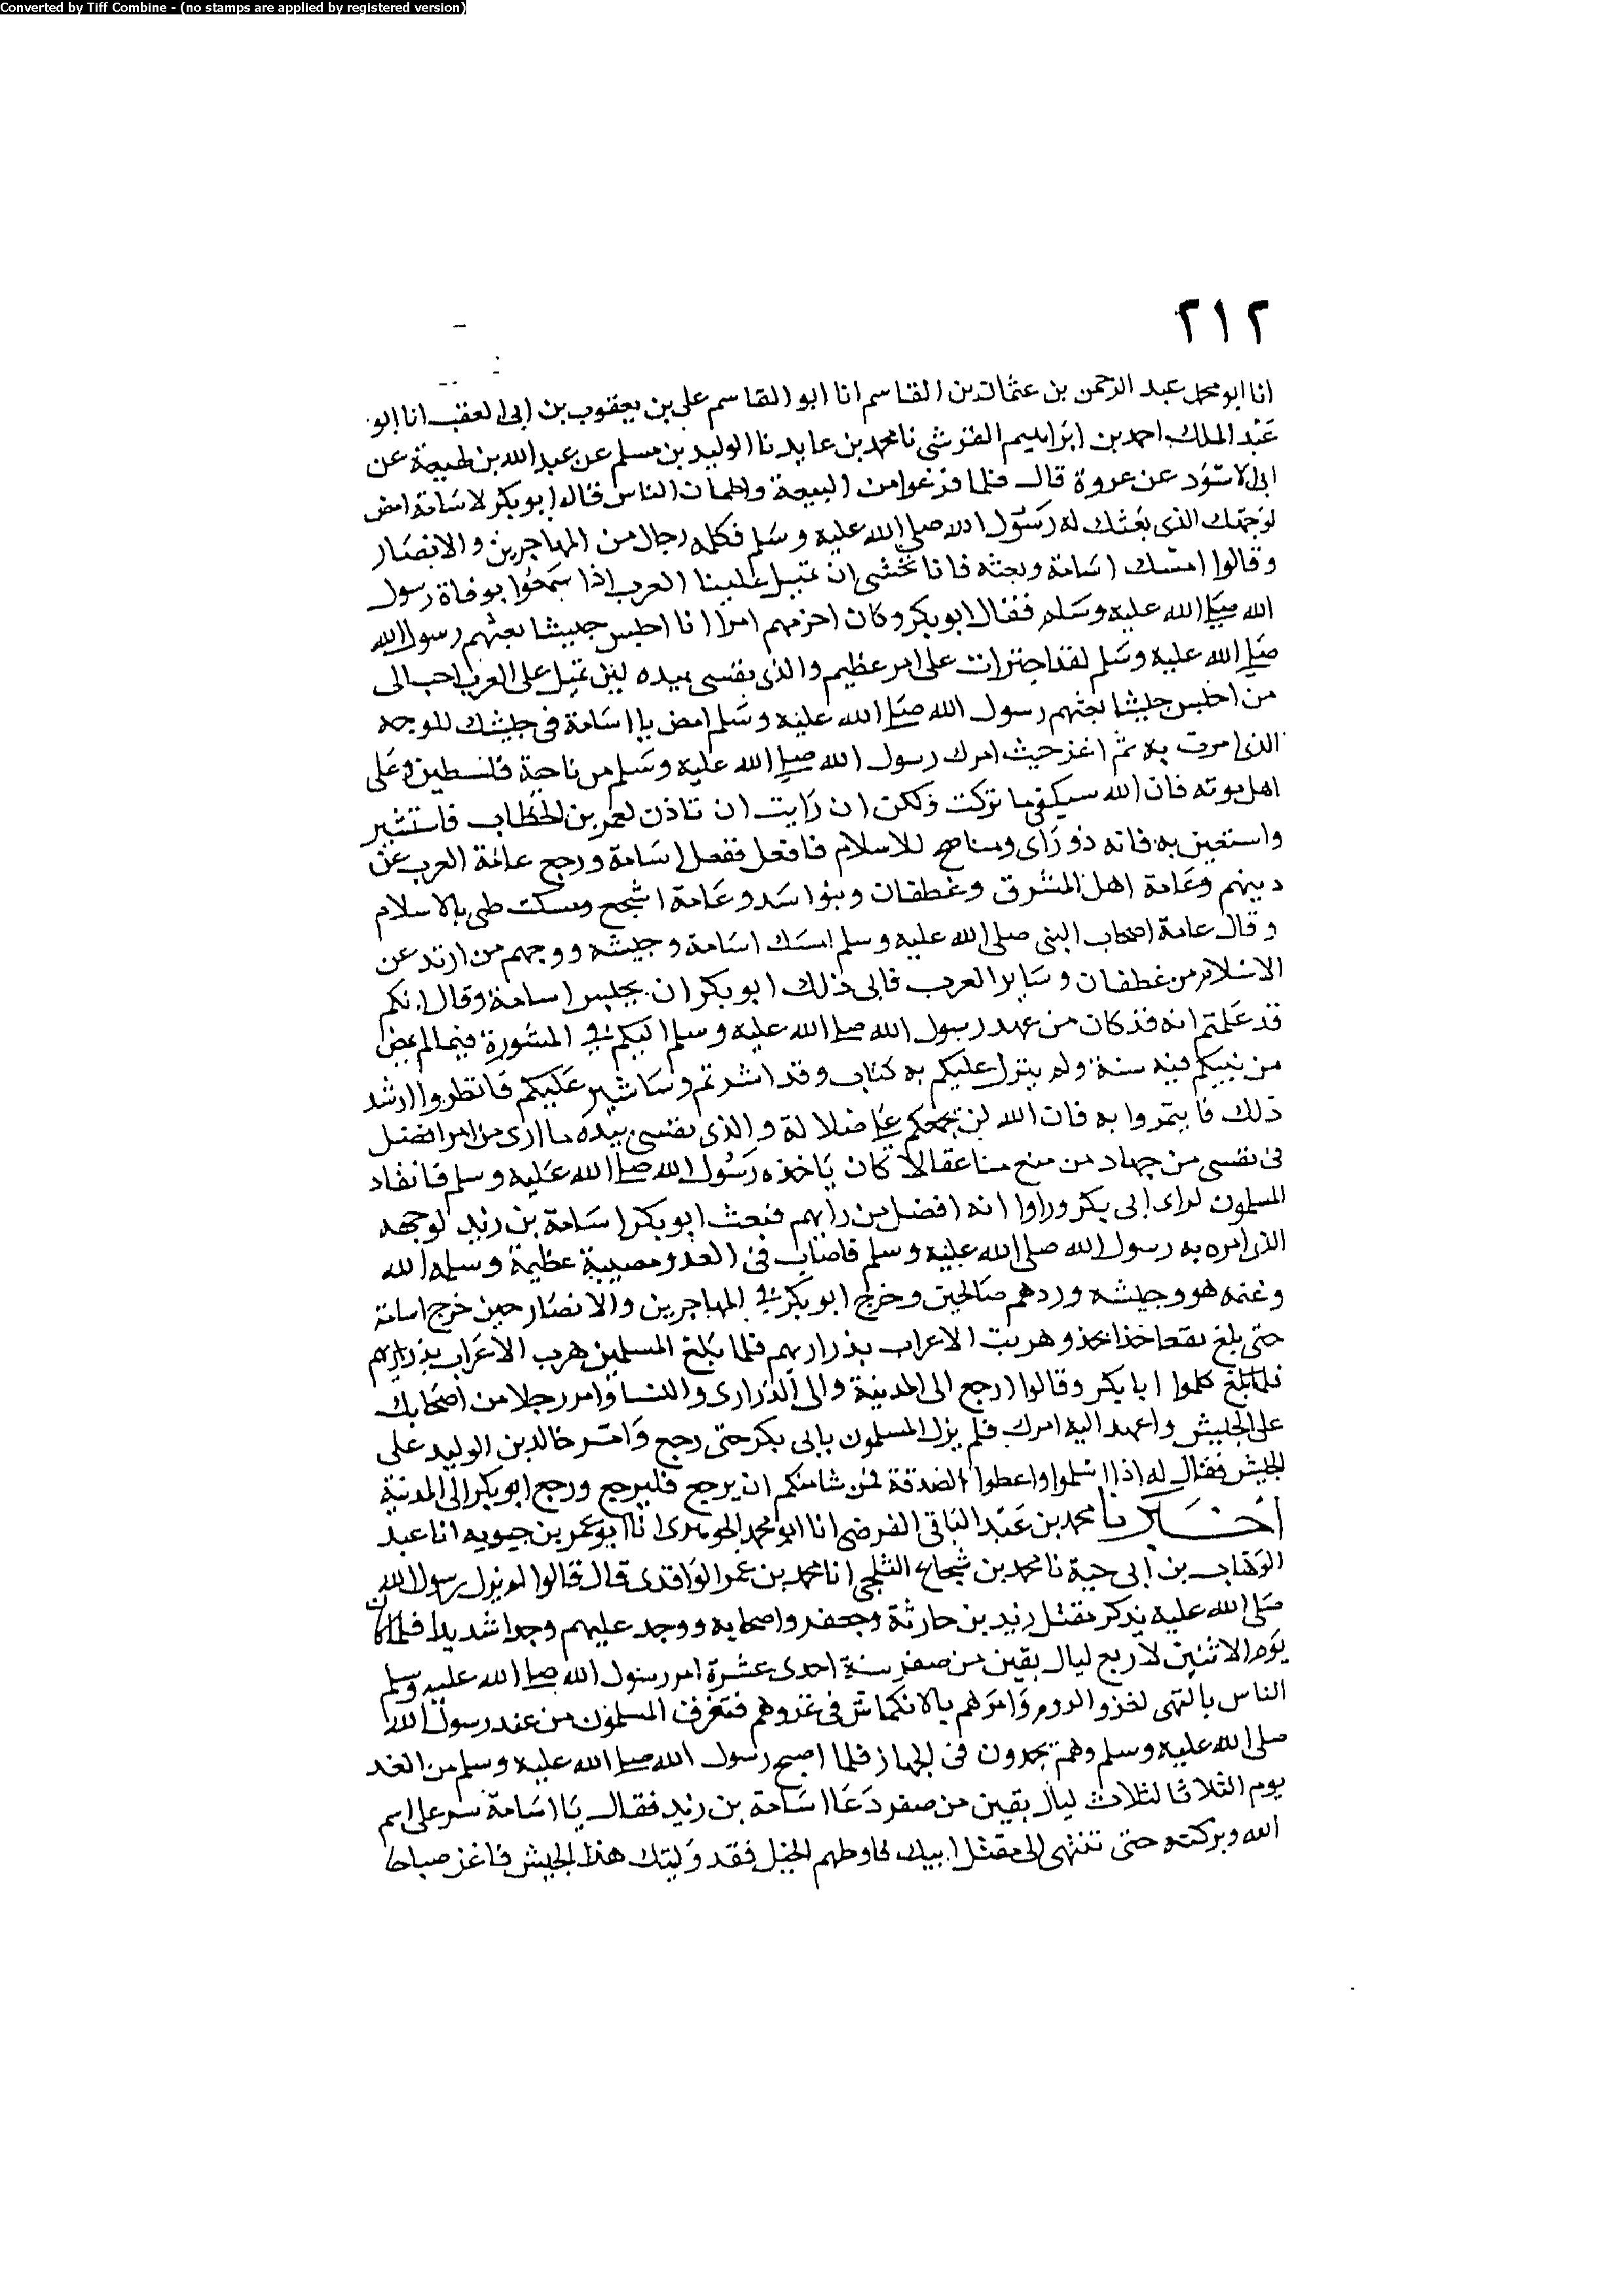 Converted by Tiff Combine - (no stamps are applied by registered version)
٢١٢
انا ابو محمد عبد الرحمن بن عثمان بن القاسم انا ابو القاسم علي بن يعقوب بن ابى العقب انا ابو
عبد الملك احمد بن ابراهيم القرشي نا محمد بن عايد نا الوليد بن مسلم عن عبد الله بن لهيعة عن
ابى الاسود عن عروة قال فلما فرغوا من البيعة واطمان الناس قال ابو بكر لاسامة امض
لوجهك الذى بعثك له رسول الله صلى الله عليه وسلم فكلمه رجال من المهاجرين والانصار
وقالوا امسك اسامة وبعثه فانا نخشى ان تميل علينا العرب اذا سمعوا بوفاة رسول
الله صلى الله عليه وسلم فقال ابو بكر وكان احزمهم امرا انا احبس جيشا بعثهم رسول الله
صلى الله عليه وسلم لقد اجترات على امر عظيم والذى نفسى بيده لئن تميل على العرب احب الى
من احبس جيشا بعثهم رسول الله صلى الله عليه وسلم امض يا اسامة فى جيشك للوجه
الذى امرت به ثم اغز حيث امرك رسول الله صلى الله عليه وسلم من ناحية فلسطين وعلى
اهل موته فان الله سيكفى ما تركت ولكن ان رايت ان تاذن لعمر بن الخطاب فاستشير
واستعين به فانه ذو راى ومناصح للاسلام فافعل ففعل اسامة ورجع عامة العرب عن
دينهم وعامة اهل المشرق وغطفان وبنوا سد وعامة اشجع ومسكت طى بالاسلام
وقال عامة اصحاب النبى صلى الله عليه وسلم امسك اسامة وجيشه ووجههم من ارتد عن
الاسلام من غطفان وساير العرب فابى ذلك ابو بكر ان يحبس اسامة وقال انكم
قد علمتم انه قد كان من عهد رسول الله صلى الله عليه وسلم اليكم في المشورة فيما لم يمض
من نبيكم فيه سنة ولم ينزل عليكم به كتاب وقد اشرتم وساشير عليكم فانظروا ارشد
ذلك فايتمروا به فان الله لن يجمعكم على ضلالة والذى نفسى بيده ما ارى من امر افضل
فى نفسى من جهاد من منع منا عقالا كان ياخذه رسول الله صلى الله عليه وسلم فانقاد
المسلمون لراى ابى بكر وراوا انه افضل من رايهم فبعث ابو بكر اسامة بن زيد لوجهه
الذى امره به رسول الله صلى الله عليه وسلم فاصاب فى العدو مصيبة عظيمة وسلمه الله
وغنمه هو وجيشه وردهم صالحين وخرج ابو بكر في المهاجرين والانصار حين خرج اسامة
حتى بلغ نقعا حذا نجد وهربت الاعراب بذراريهم فلما بلغ المسلمين هرب الاعراب بذراريهم
فلما بلغ كلموا ابا بكر وقالوا ارجع الى المدينة والى الذرارى والنسا وامر رجلا من اصحابك
على الجيش واعهد اليه امرك فلم يزل المسلمون بابى بكر حتى رجع وامر خالد بن الوليد على
الجيش فقال له اذا اسلموا واعطوا الصدقة فمن شا منكم ان يرجع فليرجع ورجع ابو بكر الى المدينة
اخبرنا محمد بن عبد الباقى الفرضى انا ابو محمد الجوهرى انا ابو عمر بن حيويه انا عبد
الوهاب بن ابى حية نا محمد بن شجاع الثلجى انا محمد بن عمر الواقدى قال قالوا لم يزل رسول الله
صلى الله عليه يذكر مقتل زيد بن حارثة وجعفر واصحابه ووجد عليهم وجدا شديدا فلما كان
يوم الاثنين لاربع ليال بقين من صفر سنة احدى عشرة امر رسول الله صلى الله عليه وسلم
الناس بالتهى لغزو الروم وامرهم بالانكماش فى غزوهم فتفرق المسلمون من عند رسول الله
صلى الله عليه وسلم وهم يجدون فى الجهاز فلما اصبح رسول الله صلى الله عليه وسلم من الغد
يوم الثلاثا لثلاث ليال بقين من صفر دعا اسامة بن زيد فقال يا اسامة سر على اسم
الله وبركته حتى تنتهى الى مقتل ابيك فاوطهم الخيل فقد وليتك هذا الجيش فاغز صباحا